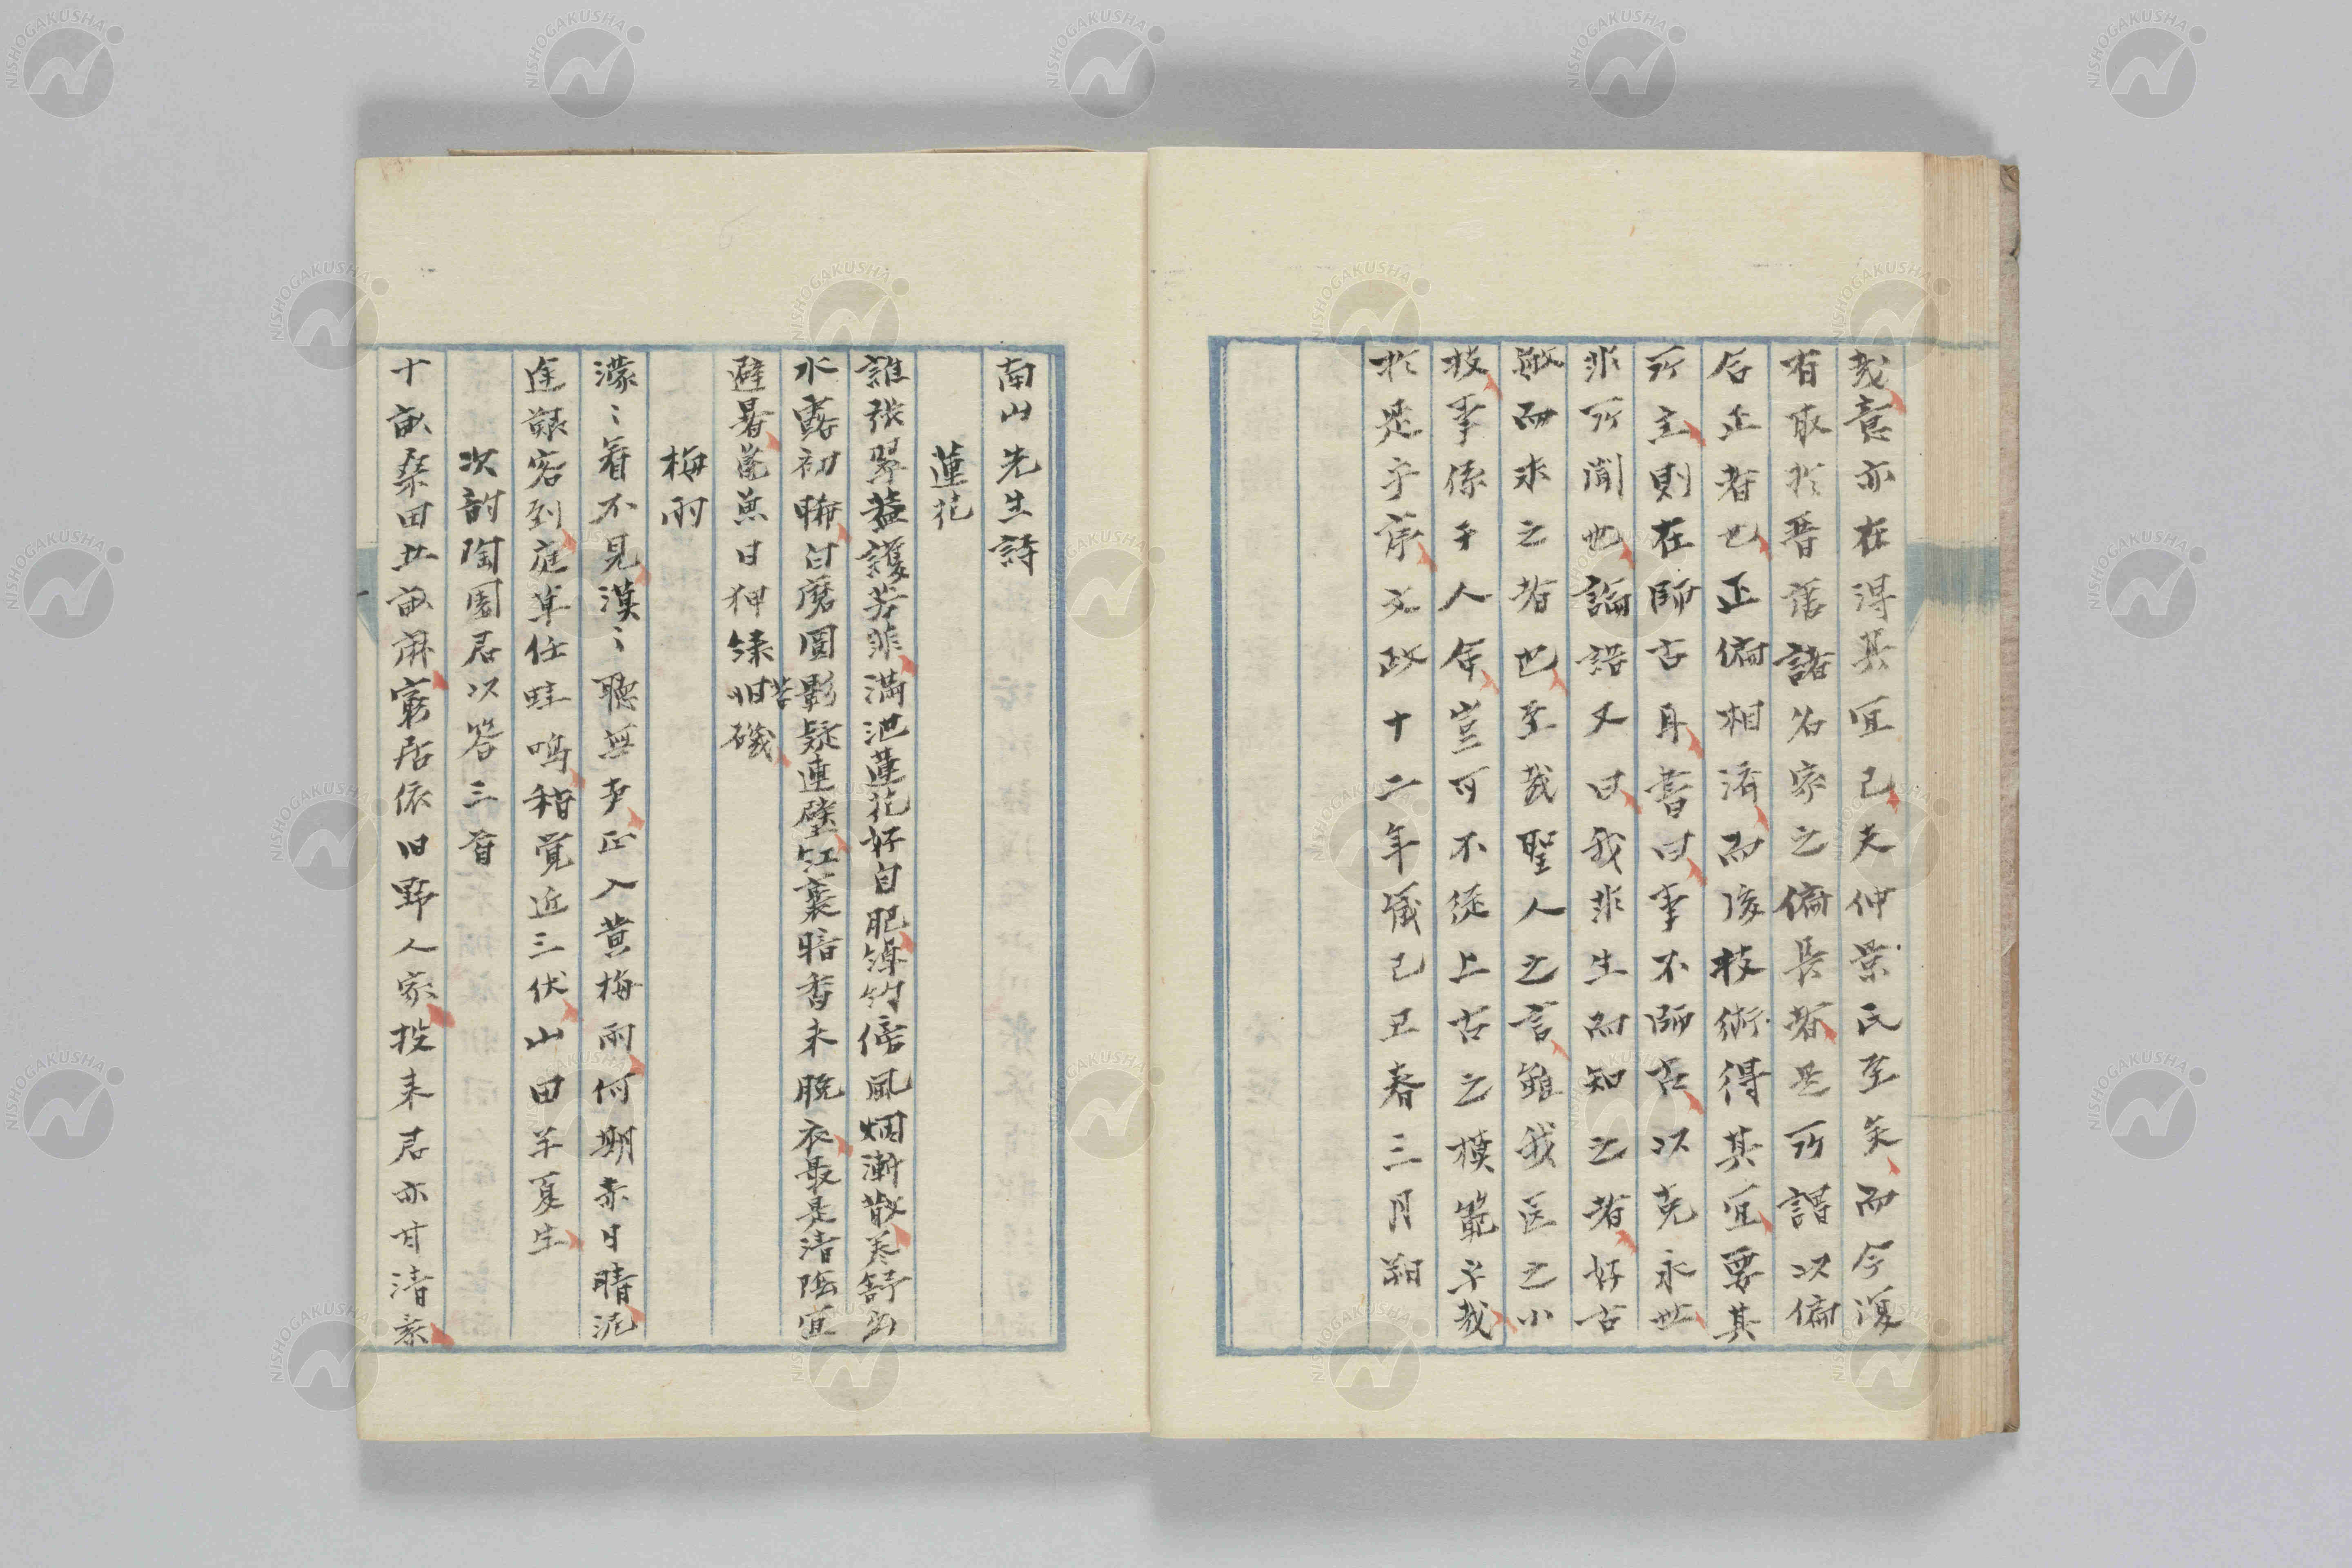 哉意亦在得其宜已夫仲景氏至矣而今復
有取於晋唐諸名家之偏長者是所謂以偏
合正者也正偏相済而後技術得其宜要其
所主則在師古耳書曰事不師古以克永世
非所聞也論語又曰我非生而知之者好古
敏而求之者也至哉聖人之言雖我医之小
技事係于人命豈可不徒上古之模範乎哉
於是乎序文政十二年歳己丑春三月朔
南山先生詩
蓮花
誰張翠蓋護芳菲満池蓮花好自肥薄竹倍風烟漸散巻舒出
水露初晞白磨圓影疑連璧紅裏暗香未脱衣最是清陰宜
避暑魚日狎緑旧磯
苔
梅雨
濛〻看不見漠〻聴無声正入黄梅雨何期赤日晴泥
途艱客到庭草任蛙鳴稍覚近三伏山田半夏生
次韵陶園居以答三首
十畝桑田廿畝麻窮居依旧野人家投来君亦甘清素